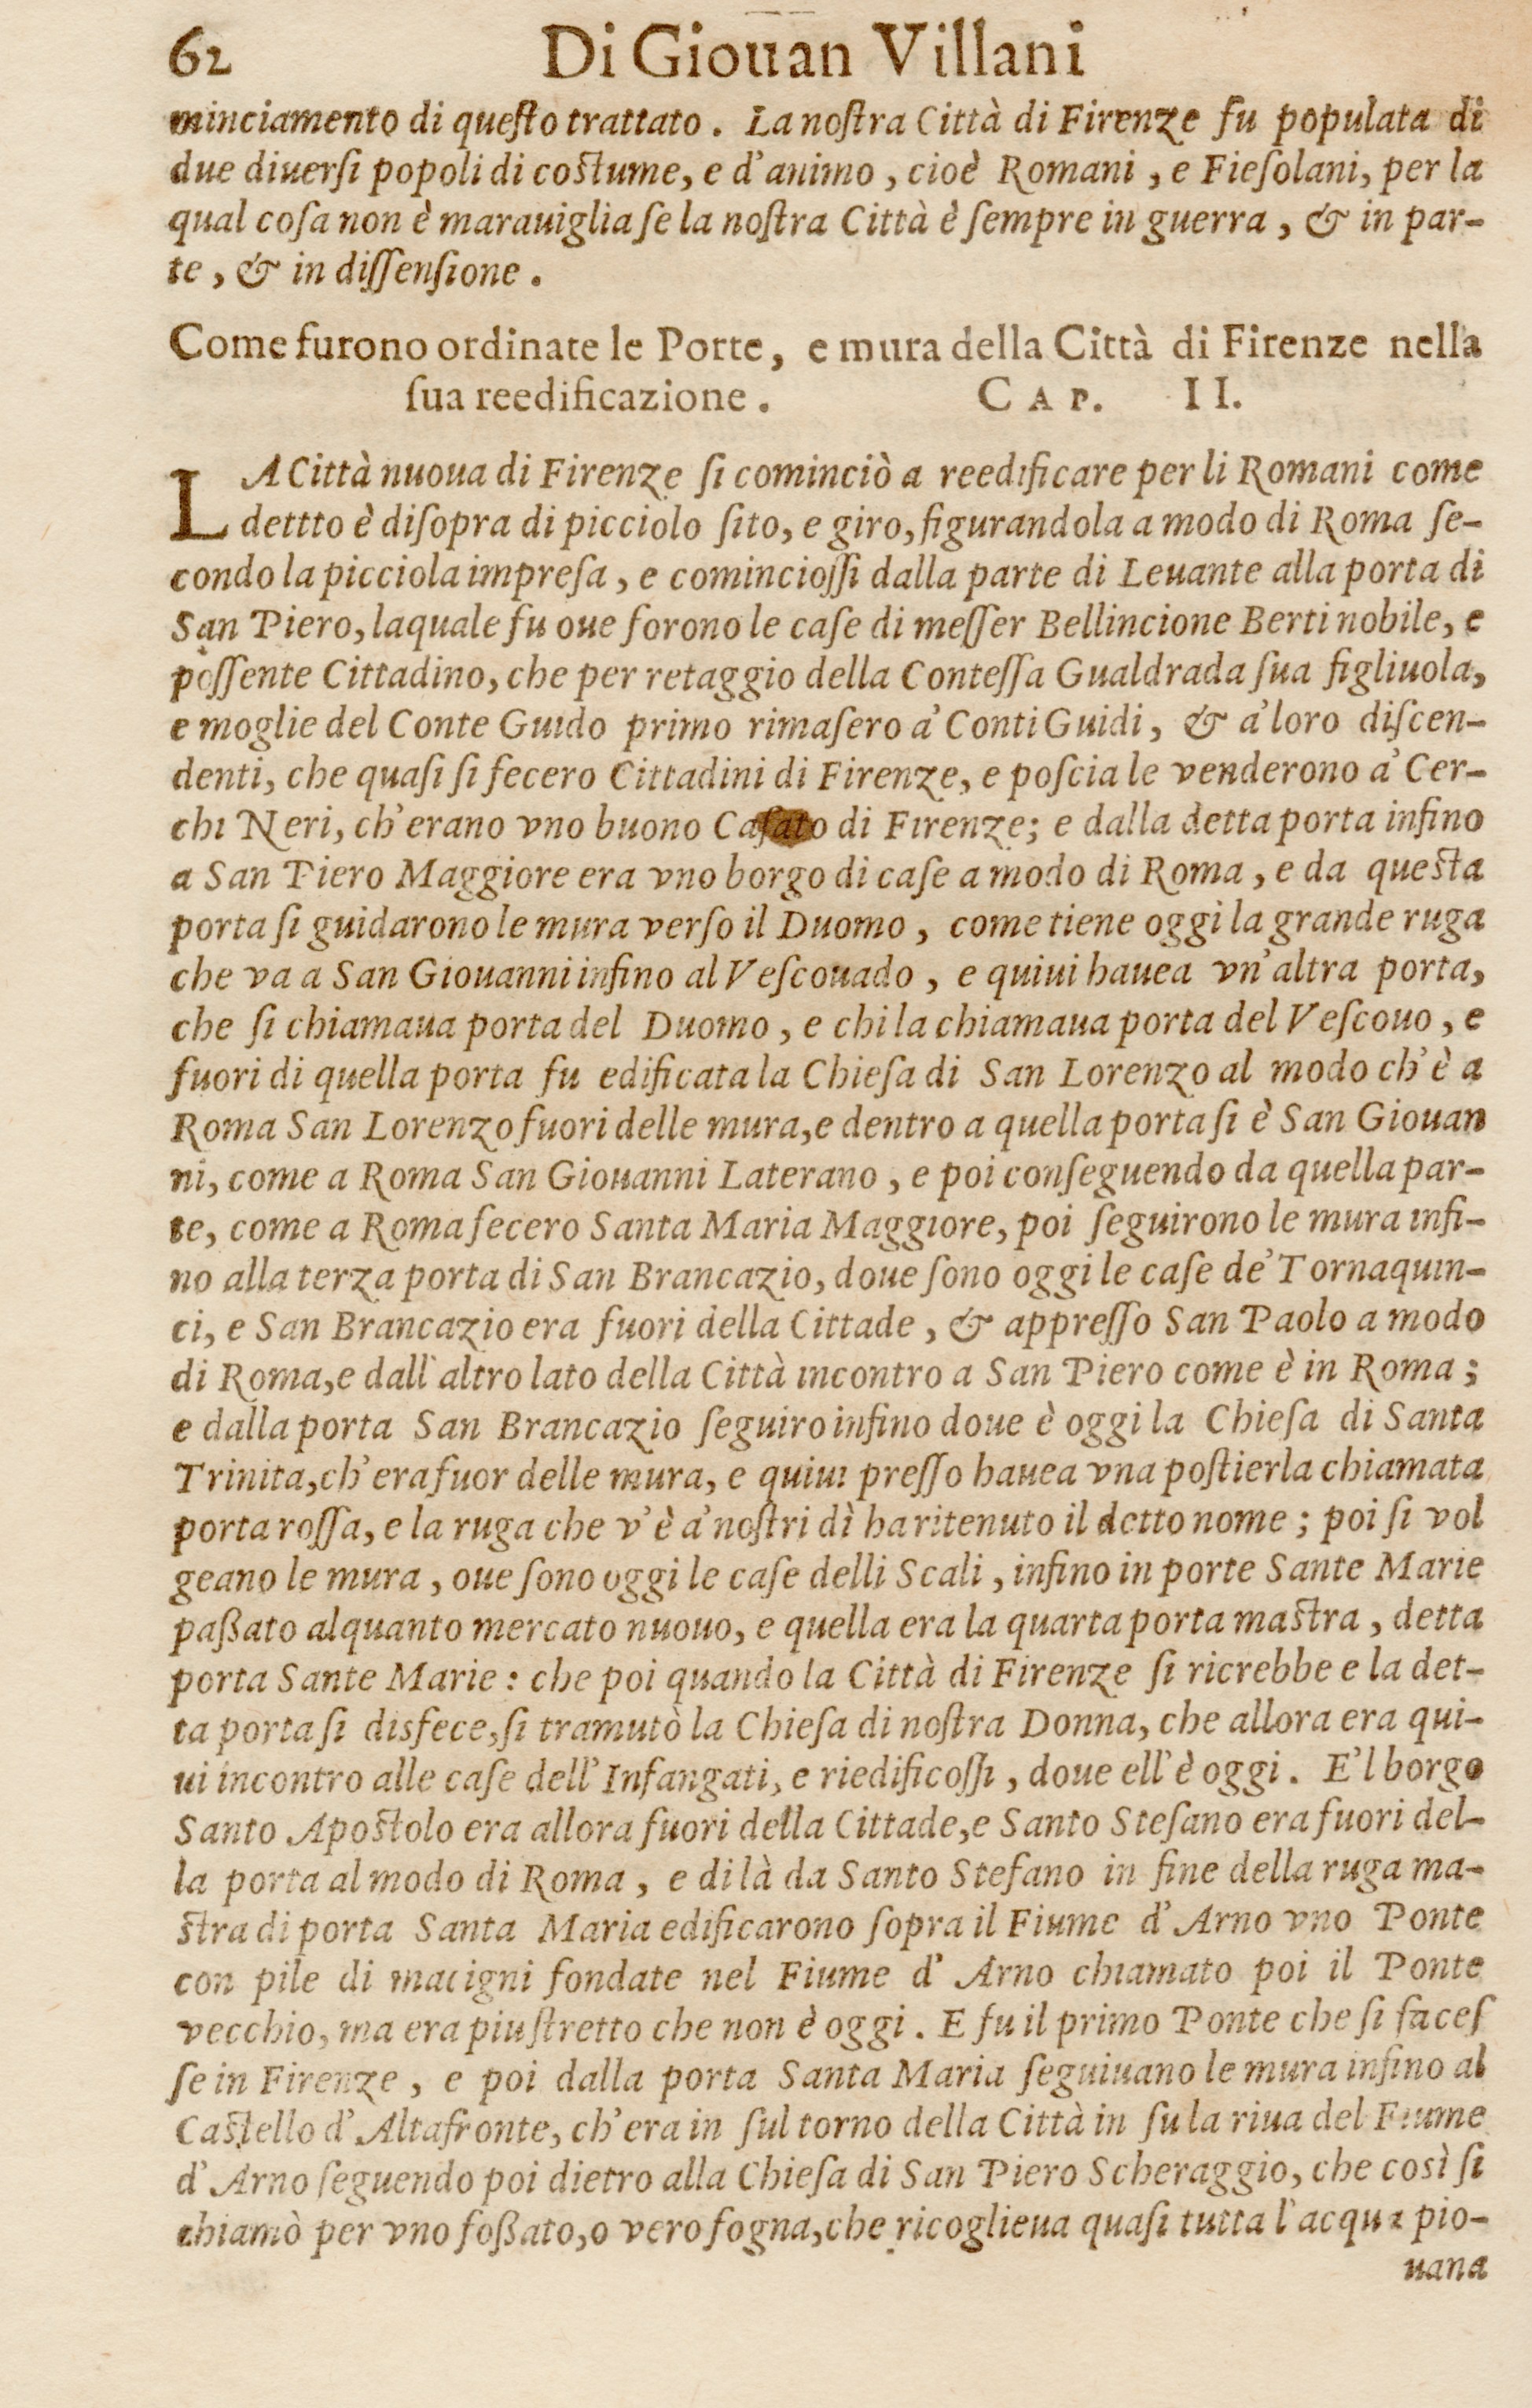 62 Di Giouan Villani
minciamento di queſto trattato. La noſtra Città di Firenze fu populata di
due diuerſi popoli di coſtume, e d'animo, cioè Romani, e Fieſolani, per la
qual coſa non è marauiglia ſe la noſtra Città è ſempre in guerra, & in par-
te, & in diſſenſione.
Come furono ordinate le Porte, e mura della Città di Firenze nella
ſua reedificazione. CAP. II.
LA Città nuoua di Firenze ſi cominciò a reedificare per li Romani come
dettto è diſopra di picciolo ſito, e giro, figurandola a modo di Roma ſe-
condo la picciola impreſa, e comincioſſi dalla parte di Leuante alla porta di
San Piero, laquale fu oue forono le caſe di meſſer Bellincione Berti nobile, e
poſſente Cittadino, che per retaggio della Conteſſa Gualdrada ſua figliuola,
e moglie del Conte Guido primo rimaſero a' Conti Guidi, & a' loro diſcen-
denti, che quaſi ſi fecero Cittadini di Firenze, e poſcia le venderono a' Cer-
chi Neri, ch'erano vno buono Caſato di Firenze; e dalla detta porta infino
a San Piero Maggiore era vno borgo di caſe a modo di Roma, e da queſta
porta ſi guidarono le mura verſo il Duomo, come tiene oggi la grande ruga
che va a San Giouanni infino al Veſcouado, e quiui hauea vn'altra porta,
che ſi chiamaua porta del Duomo, e chi la chiamaua porta del Veſcouo, e
fuori di quella porta fu edificata la Chieſa di San Lorenzo al modo ch'è a
Roma San Lorenzo fuori delle mura, e dentro a quella porta ſi è San Giouan
ni, come a Roma San Giouanni Laterano, e poi conſeguendo da quella par-
te, come a Roma fecero Santa Maria Maggiore, poi ſeguirono le mura infi-
no alla terza porta di San Brancazio, doue ſono oggi le caſe de' Tornaquin-
ci, e San Brancazio era fuori della Cittade, & appreſſo San Paolo a modo
di Roma, e dall'altro lato della Città incontro a San Piero come è in Roma;
e dalla porta San Brancazio ſeguiro infino doue è oggi la Chieſa di Santa
Trinita, ch'era fuor delle mura, e quiui preſſo hauea vna poſtierla chiamata
porta roſſa, e la ruga che v'è a' noſtri dì ha ritenuto il detto nome; poi ſi vol
geano le mura, oue ſono oggi le caſe delli Scali, infino in porte Sante Marie
paßato alquanto mercato nuouo, e quella era la quarta porta maſtra, detta
porta Sante Marie: che poi quando la Città di Firenze ſi ricrebbe e la det-
ta porta ſi disfece, ſi tramutò la Chieſa di noſtra Donna, che allora era qui-
ui incontro alle caſe dell'Infangati, e riedificoſſi, doue ell'è oggi. E'l borgo
Santo Apoſtolo era allora fuori della Cittade, e Santo Stefano era fuori del-
la porta al modo di Roma, e di là da Santo Stefano in fine della ruga ma-
ſtra di porta Santa Maria edificarono ſopra il Fiume d'Arno vno Ponte
con pile di macigni fondate nel Fiume d'Arno chiamato poi il Ponte
vecchio, ma era piu ſtretto che non è oggi. E fu il primo Ponte che ſi faceſ
ſe in Firenze, e poi dalla porta Santa Maria ſeguiuano le mura infino al
Caſtello d'Altafronte, ch'era in ſul torno della Città in ſu la riua del Fiume
d'Arno ſeguendo poi dietro alla Chieſa di San Piero Scheraggio, che così ſi
chiamò per vno foßato, o vero fogna, che ricoglieua quaſi tutta l'acqua pio-
uana